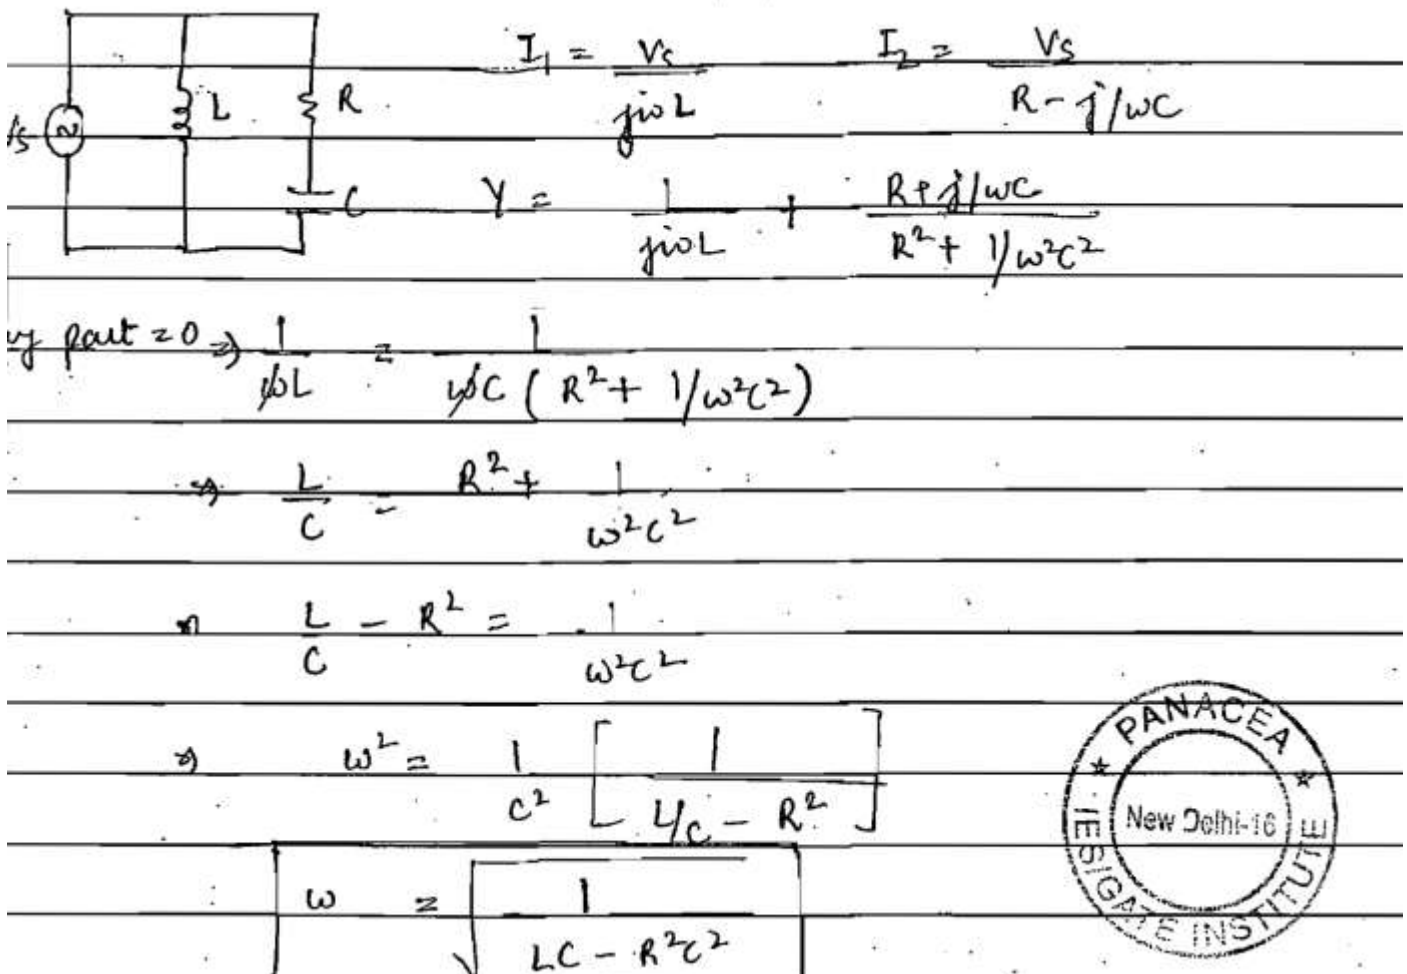 I1 = Vs / jωL    I2 = Vs / (R - j/ωC)
L R
C
Y = 1 / jωL + (R + j/ωC) / (R² + 1/ω²C²)
part = 0 ⇒ 1 / ωL = 1 / ωC (R² + 1/ω²C²)
⇒ L/C = R² + 1 / ω²C²
L/C - R² = 1 / ω²C²
⇒ ω² = 1/C² [ 1 / (L/C - R²) ]
ω = √( 1 / (LC - R²C²) )
PANACEA
New Delhi-16
IES|GATE INSTITUTE